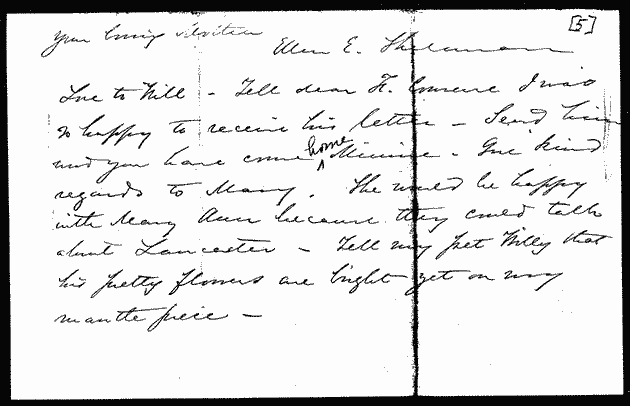 [5]
Your loving
Ellen E. Sherman
Love to Will - Tell dear F. I was
so happy to receive his letter - Send him
and you have come home Minnie - Give kind
regards to Mary. She would be happy
with Mary Ann because they could talk
about Lancaster - Tell my pet Willy that
his pretty flowers are bright yet on my
mantle piece -